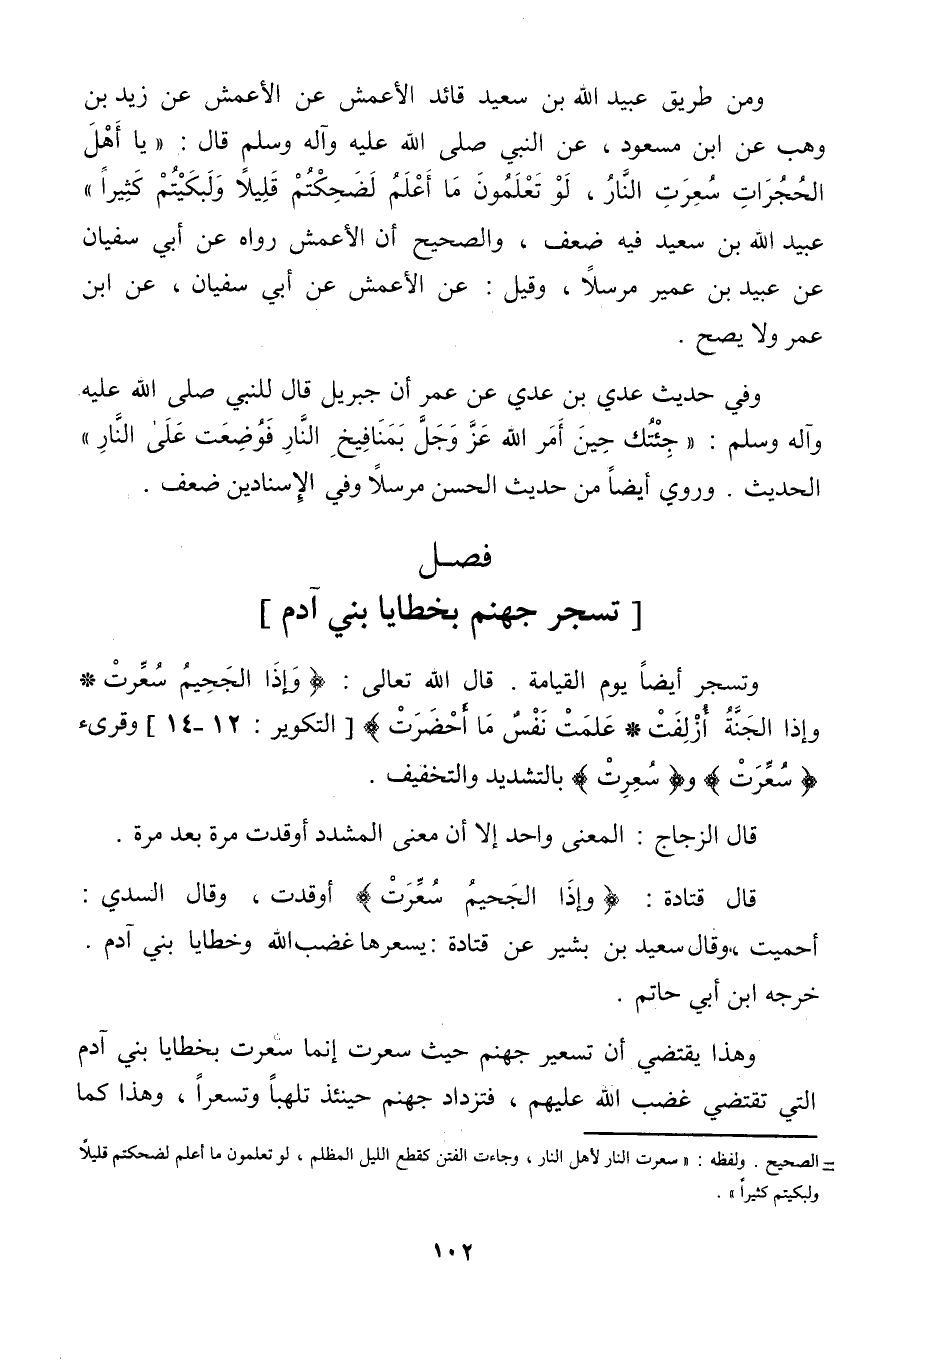 ومن طريق عبيد الله بن سعيد قائد الأعمش عن الأعمش عن زيد بن
وهب عن ابن مسعود ، عن النبي صلى الله عليه وآله وسلم قال : « يا أَهْلَ
الحُجُرَاتِ سُعِرَتِ النَّارُ ، لَوْ تَعْلَمُونَ مَا أَعْلَمُ لَضَحِكْتُمْ قَلِيلاً وَلَبَكَيْتُمْ كَثِيراً »
عبيد الله بن سعيد فيه ضعف ، والصحيح أن الأعمش رواه عن أبي سفيان
عن عبيد بن عمير مرسلاً ، وقيل : عن الأعمش عن أبي سفيان ، عن ابن
عمر ولا يصح .
وفي حديث عدي بن عدي عن عمر أن جبريل قال للنبي صلى الله عليه
وآله وسلم : « جِئْتُك حِينَ أَمَر الله عَزَّ وَجَلَّ بَمَنَافِيخِ النَّارِ فَوُضِعَت عَلَىٰ النَّارِ »
الحديث . وروي أيضاً من حديث الحسن مرسلاً وفي الإسنادين ضعف .
فصل
[ تسجر جهنم بخطايا بني آدم ]
وتسجر أيضاً يوم القيامة . قال الله تعالى : ﴿ وَإِذَا الجَحِيمُ سُعِّرتْ *
وإذا الجَنَّةُ أُزْلِفَتْ * عَلمَتْ نَفْسٌ مَا أَحْضَرَتْ ﴾ [ التكوير : ١٢ -١٤ ] وقرىء
﴿ سُعِّرَتْ ﴾ و﴿ سُعِرتْ ﴾ بالتشديد والتخفيف .
قال الزجاج : المعنى واحد إلا أن معنى المشدد أوقدت مرة بعد مرة .
قال قتادة : ﴿ وإذَا الجَحيمُ سُعِّرَتْ ﴾ أوقدت ، وقال السدي :
أحميت ، وقال سعيد بن بشير عن قتادة : يسعرها غضب الله وخطايا بني آدم .
خرجه ابن أبي حاتم .
وهذا يقتضي أن تسعير جهنم حيث سعرت إنما سعرت بخطايا بني آدم
التي تقتضي غضب الله عليهم ، فتزداد جهنم حينئذ تلهباً وتسعراً ، وهذا كما
= الصحيح . ولفظه : « سعرت النار لأهل النار ، وجاءت الفتن كقطع الليل المظلم ، لو تعلمون ما أعلم لضحكتم قليلاً
ولبكيتم كثيراً » .
١٠٢